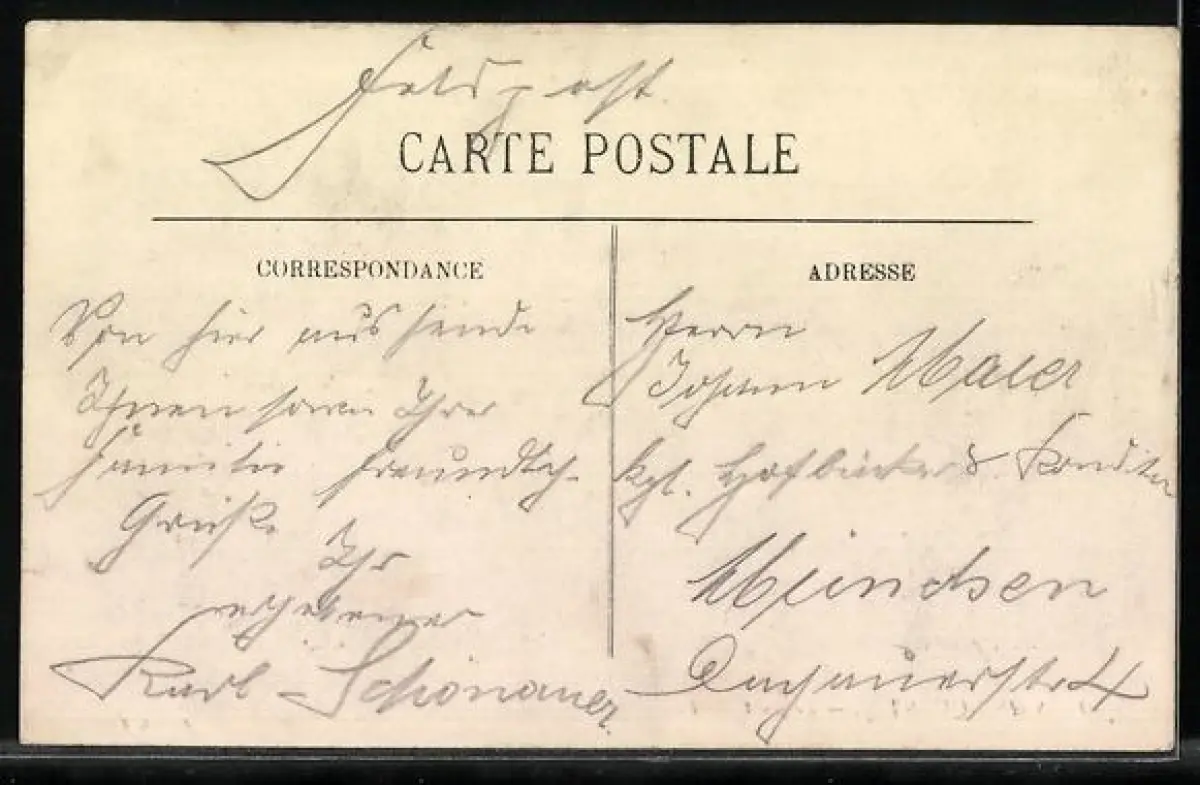 Feldpost.
CARTE POSTALE
CORRESPONDANCE
Von hier aus sende
Ihnen sowie Ihrer
Familie freundlich.
Grüße
Ihr
ergebener
Karl Schönauer.
ADRESSE
Herrn
Johann Maier
Kgl. Hofbäcker & Konditor
München
Dachauerstr. 4